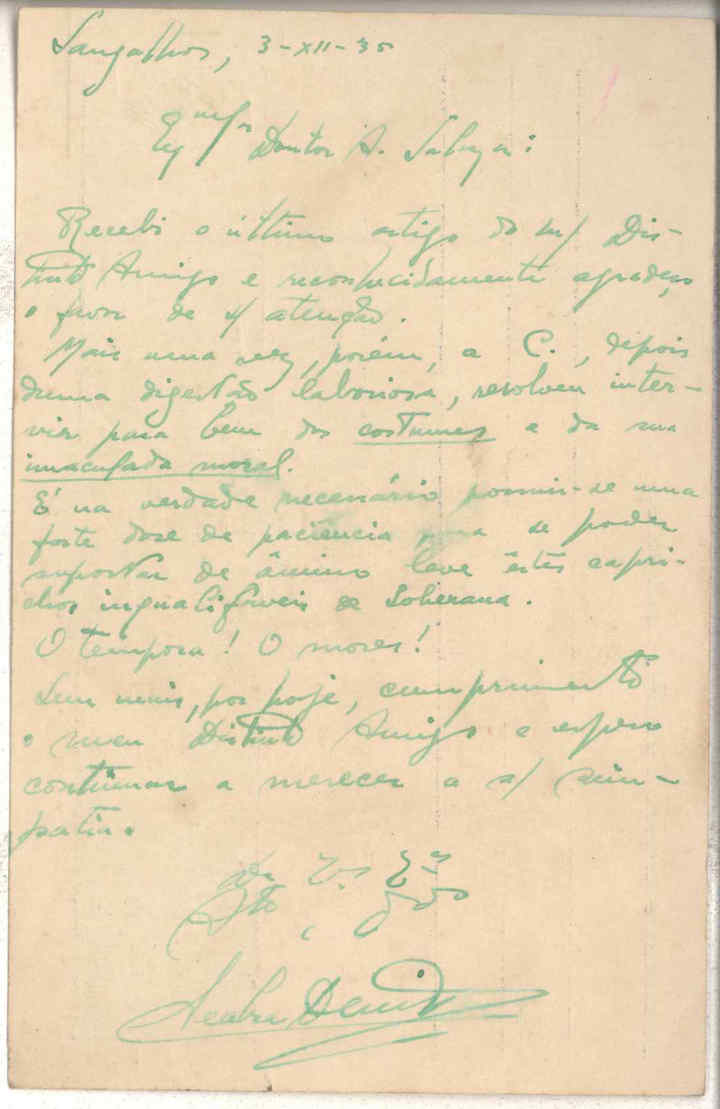 Sangalhos, 3-XII-35
Exmo Sr Doutor A. Salazar:
Recebi o último artigo do m/ Dis-
tinto Amigo e reconhecidamente agradeço
o favor de s/ atenção.
Mais uma vez, porém, a C., depois
duma digestão laboriosa, resolveu inter-
vir para bem dos costumes e da sua
imaculada moral.
É na verdade necessário possuir-se uma
forte dose de paciência para se poder
suportar de ânimo leve êstes capri-
chos inqualificáveis de Soberana.
O tempora! O mores!
Sem mais, por hoje, cumprimento
o meu Distinto Amigo e espero
continuar a merecer a s/ sim-
patia.
De V. Exa
Seabra Deniz